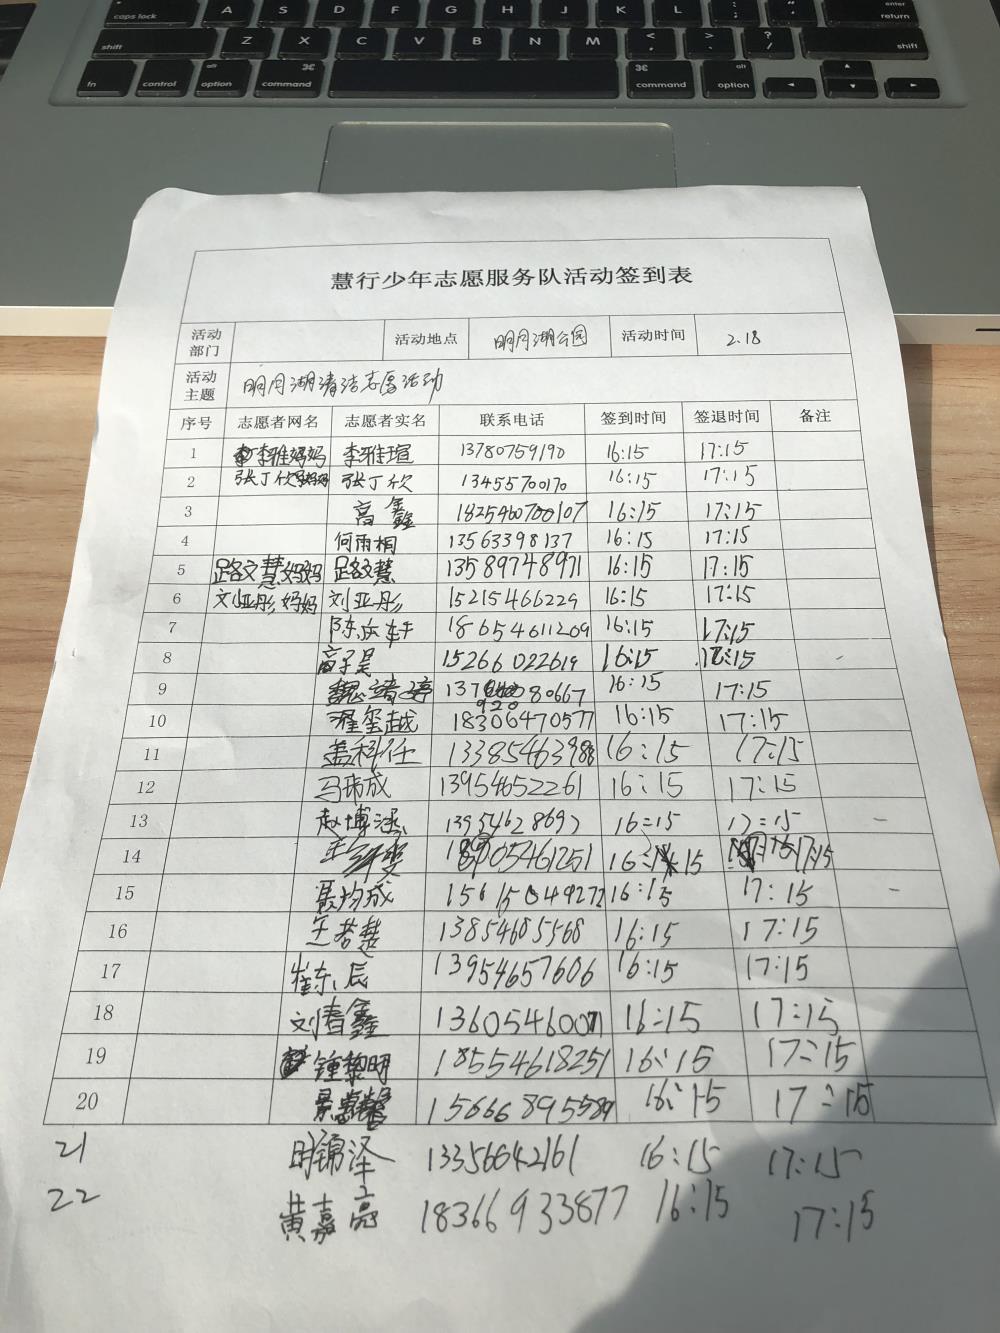 caps lock A S D F G H J K L : ; " ' enter return
shift Z X C V B N M < , > . ? / shift
fn control alt option ⌘ command ⌘ command alt option
慧行少年志愿服务队活动签到表
活动部门 活动地点 明月湖公园 活动时间 2.18
活动主题 明月湖清洁志愿活动
序号 志愿者网名 志愿者实名 联系电话 签到时间 签退时间 备注
1 李雅妈妈 李雅瑄 13780759190 16:15 17:15
2 张丁欣妈妈 张丁欣 13455700170 16:15 17:15
3 高鑫 1825460700107 16:15 17:15
4 何雨桐 13563398137 16:15 17:15
5 路文慧妈妈 路文慧 13589748971 16:15 17:15
6 刘亚彤妈妈 刘亚彤 15215466229 16:15 17:15
7 陈 轩 18654611209 16:15 17:15
8 高子昊 15266022619 16:15 17:15
9 魏靖婷 137 920 80667 16:15 17:15
10 玺越 18306470577 16:15 17:15
11 盖科任 13385463988 16:15 17:15
12 马玮成 13954652261 16:15 17:15
13 赵博涵 13954628697 16:15 17:15
14 05461251 16:15 17:15
15 聂均成 15615049272 16:15 17:15
16 王若楚 13854685568 16:15 17:15
17 崔东辰 13954657606 16:15 17:15
18 刘春鑫 13605460071 16:15 17:15
19 锺黎明 18554618251 16:15 17:15
20 景 馨 15666895589 16:15 17:15
21 明锦泽 13356642161 16:15 17:15
22 黄嘉亮 18366933877 16:15 17:15